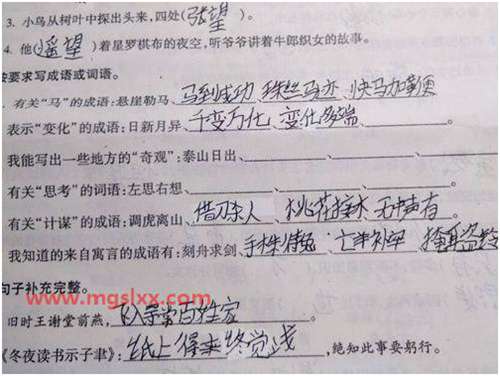 3. 小鸟从树叶中探出头来,四处(张望)。
4. 他(遥望)着星罗棋布的夜空,听爷爷讲着牛郎织女的故事。
按要求写成语或词语。
有关“马”的成语:悬崖勒马、马到成功、蛛丝马迹、快马加鞭
表示“变化”的成语:日新月异、千变万化、变化多端、
我能写出一些地方的“奇观”:泰山日出、
有关“思考”的词语:左思右想、
有关“计谋”的成语:调虎离山、借刀杀人、桃花接木、无中声有。
我知道的来自寓言的成语有:刻舟求剑、手株待兔、亡羊补牢、掩耳盗铃
句子补充完整。
www.mgslxx.com
旧时王谢堂前燕,飞入寻常百姓家。
《冬夜读书示子聿》:纸上得来终觉浅,绝知此事要躬行。